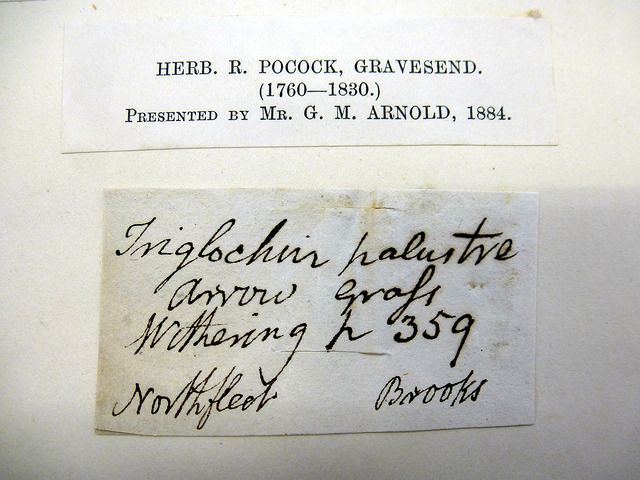 HERB. R. POCOCK, GRAVESEND.
(1760—1830.)
PRESENTED BY MR. G. M. ARNOLD, 1884.
Triglochin palustre
Arrow Graſs
Withering p 359
Northfleet Brooks